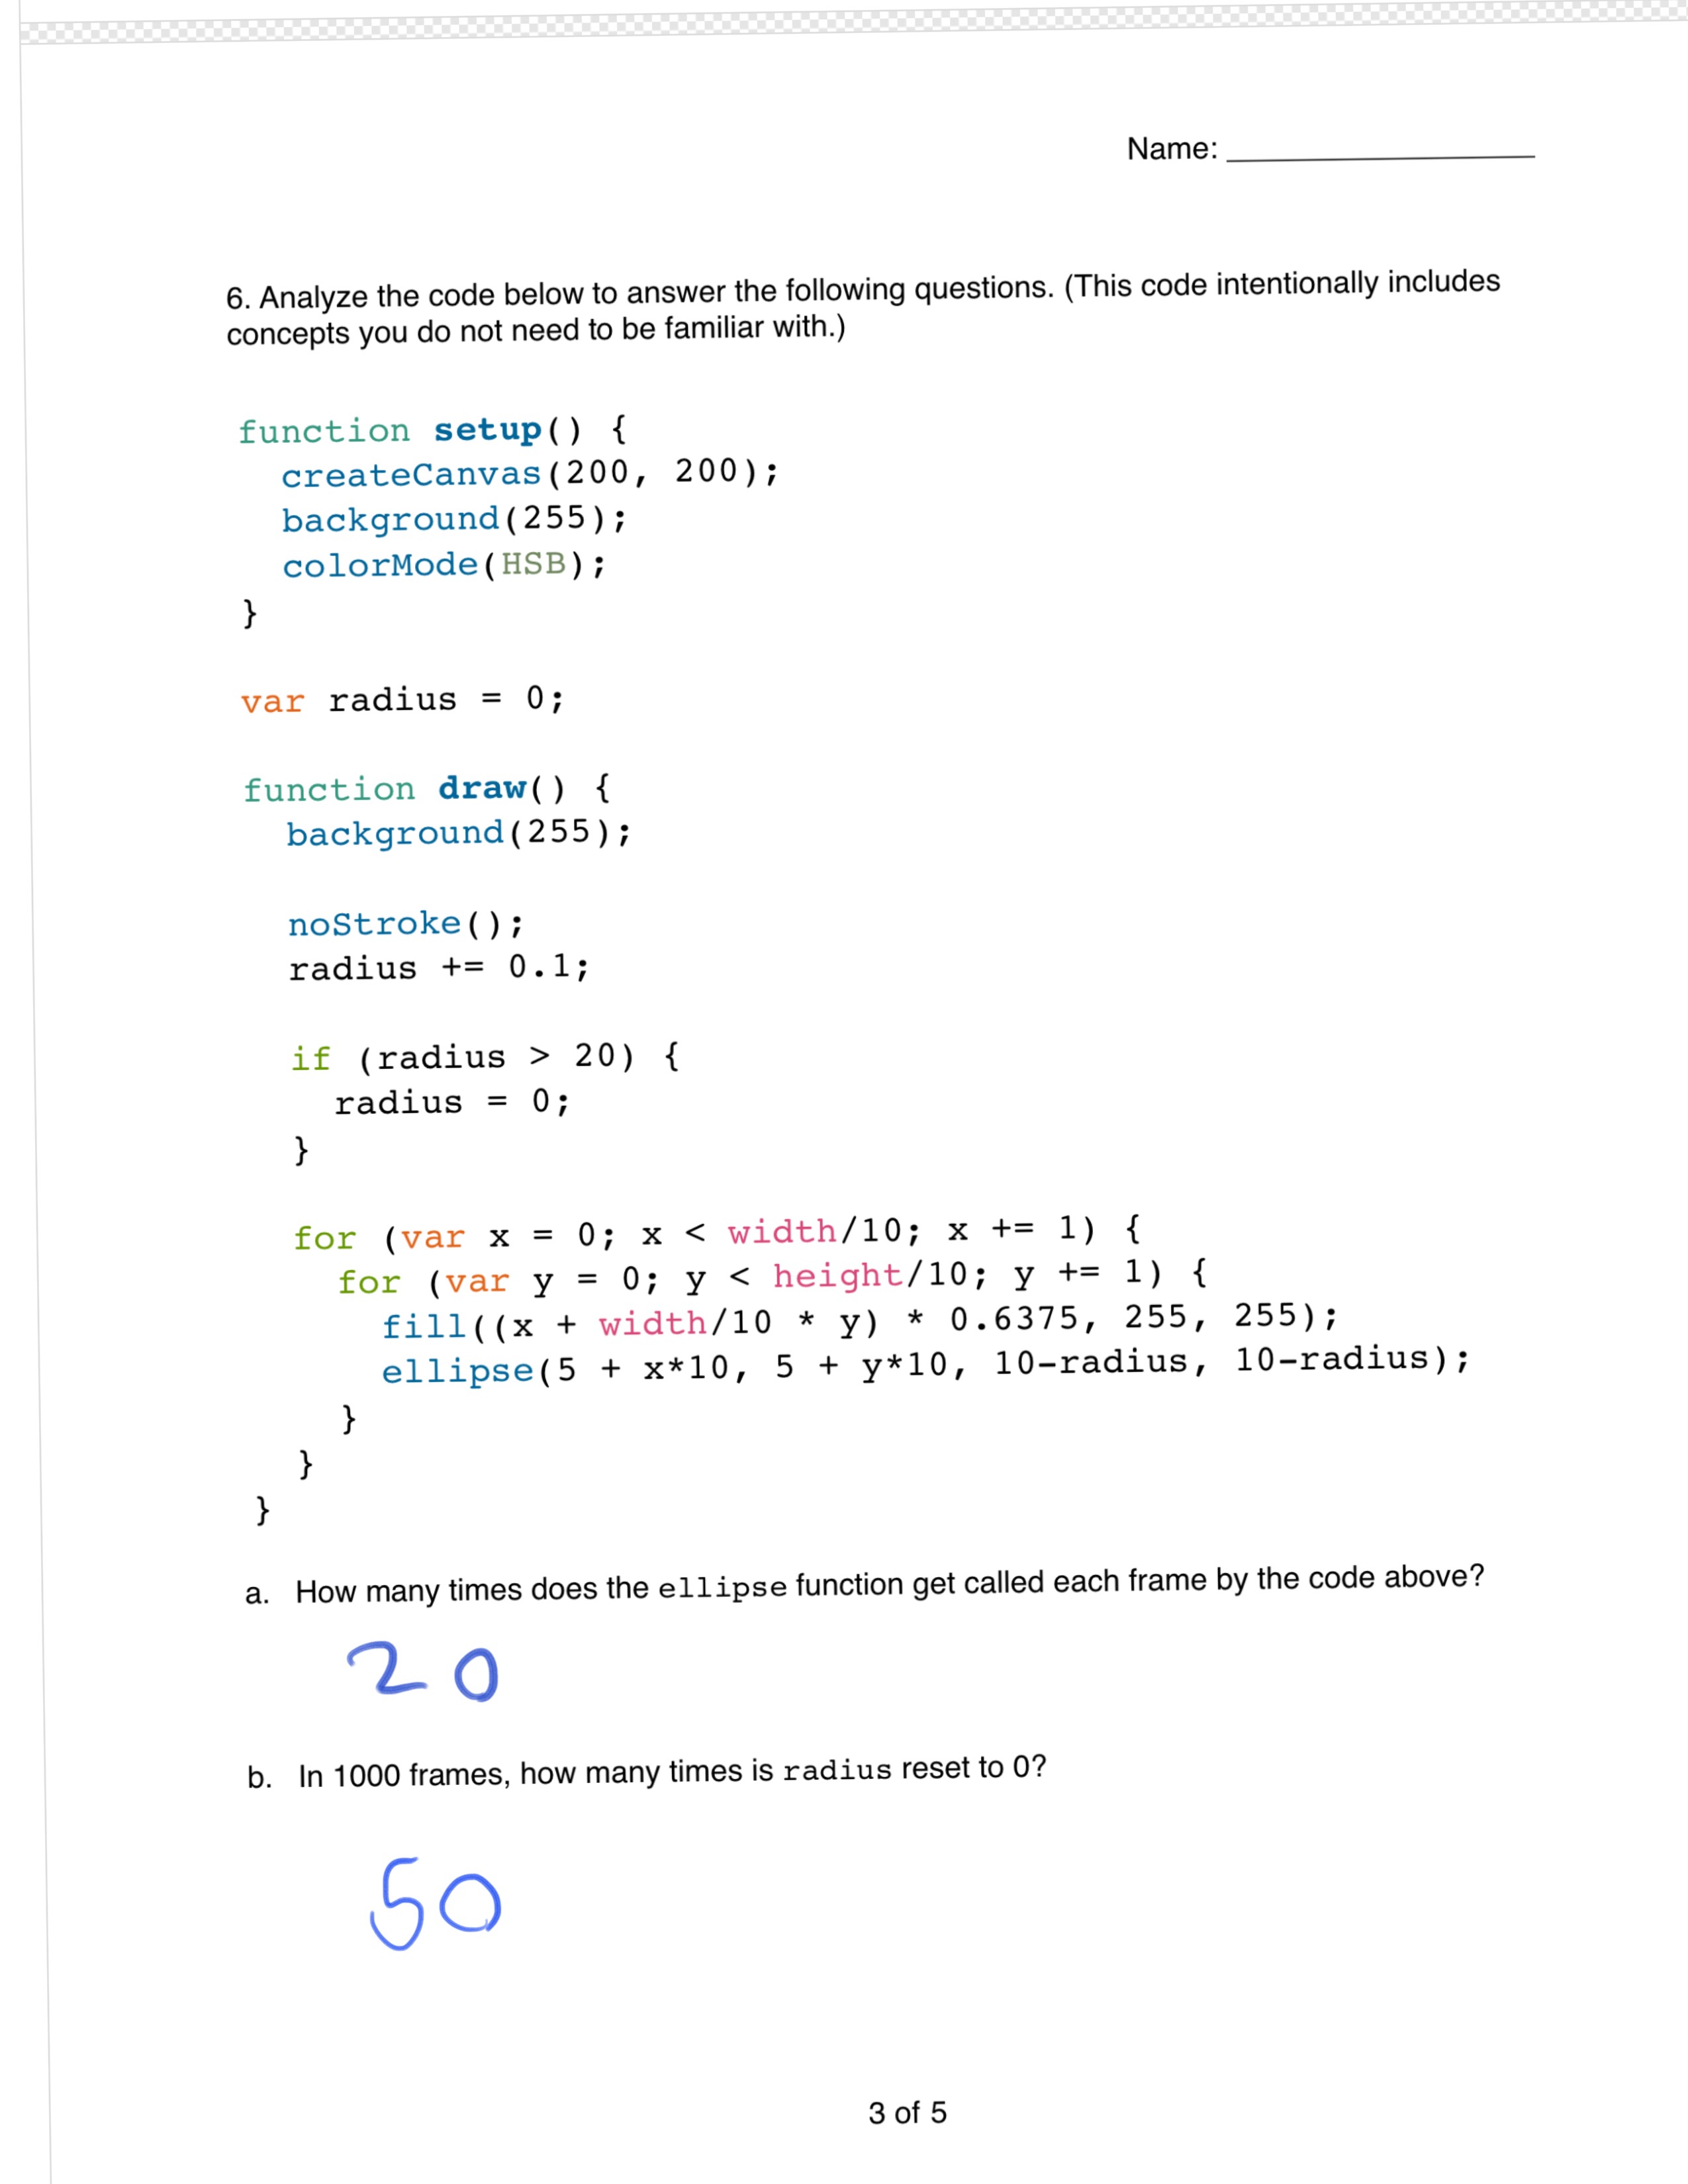 Name: ____________________
6. Analyze the code below to answer the following questions. (This code intentionally includes
concepts you do not need to be familiar with.)
function setup() {
  createCanvas(200, 200);
  background(255);
  colorMode(HSB);
}
var radius = 0;
function draw() {
  background(255);
  noStroke();
  radius += 0.1;
  if (radius > 20) {
    radius = 0;
  }
  for (var x = 0; x < width/10; x += 1) {
    for (var y = 0; y < height/10; y += 1) {
      fill((x + width/10 * y) * 0.6375, 255, 255);
      ellipse(5 + x*10, 5 + y*10, 10-radius, 10-radius);
    }
  }
}
a. How many times does the ellipse function get called each frame by the code above?
20
b. In 1000 frames, how many times is radius reset to 0?
50
3 of 5